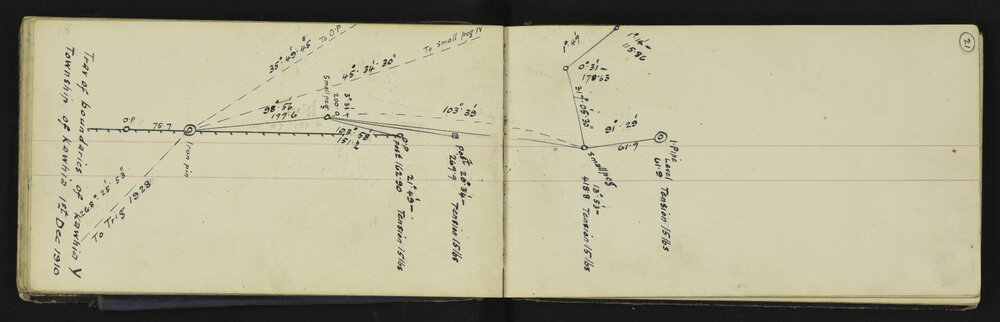 21
8
Trav of boundaries of Kawhia V
Township of Kawhia 1st Dec 1910
268° 25' 53"
To Trig 1928
O.P
75.7
Iron pin
35° 49' 45"
To O.P
45° 34' 30"
To small peg IV
98° 56'
199.6
Small peg
3° 31'
200.0
103° 58'
151.2
O.P
post 162.90
21° 49'–
Tension 15 lbs
103° 39'
Post 20° 34'–
269.9 Tension 15 lbs
1° 49'
1° 14'–
115.86
0° 31'–
178.63
317° 05' 30"
small peg
13° 53'–
418.8 Tension 15 lbs
91° 29'
61.9
I. Pipe
Level Tension 15 lbs
61.9